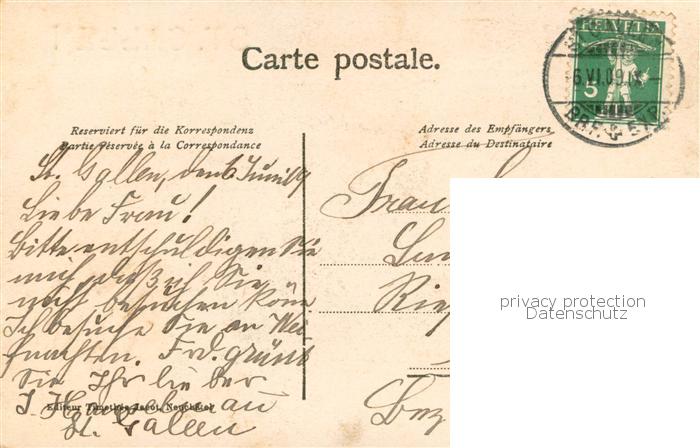 Carte postale.
HELVETIA
5
6.VI.09.
Reserviert für die Korrespondenz
Partie réservée à la Correspondance
Adresse des Empfängers
Adresse du Destinataire
St. Gallen, den 6 Juni 09
Liebe Frau!
Bitte entschuldigen Sie
mich daß ich Sie
nicht besuchen köne
Ich besuche Sie an Wei
nachten. Frd. grüßt
Sie Ihr lieber
J
St. Gallen
Frau
Bez
Editeur Timothée Jacot, Neuchâtel
privacy protection
Datenschutz